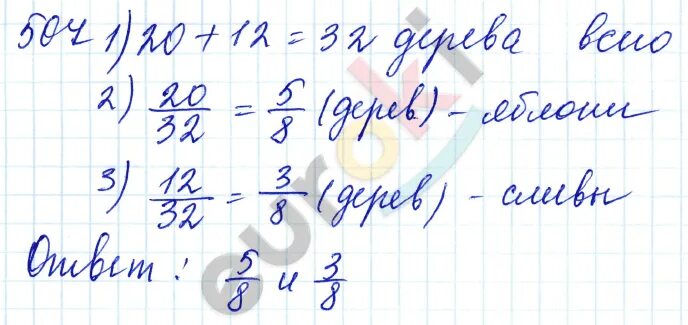 507 1) 20 + 12 = 32 дерева всего
2) 20/32 = 5/8 (дерев) - яблони
3) 12/32 = 3/8 (дерев) - сливы
Ответ: 5/8 и 3/8
euroki